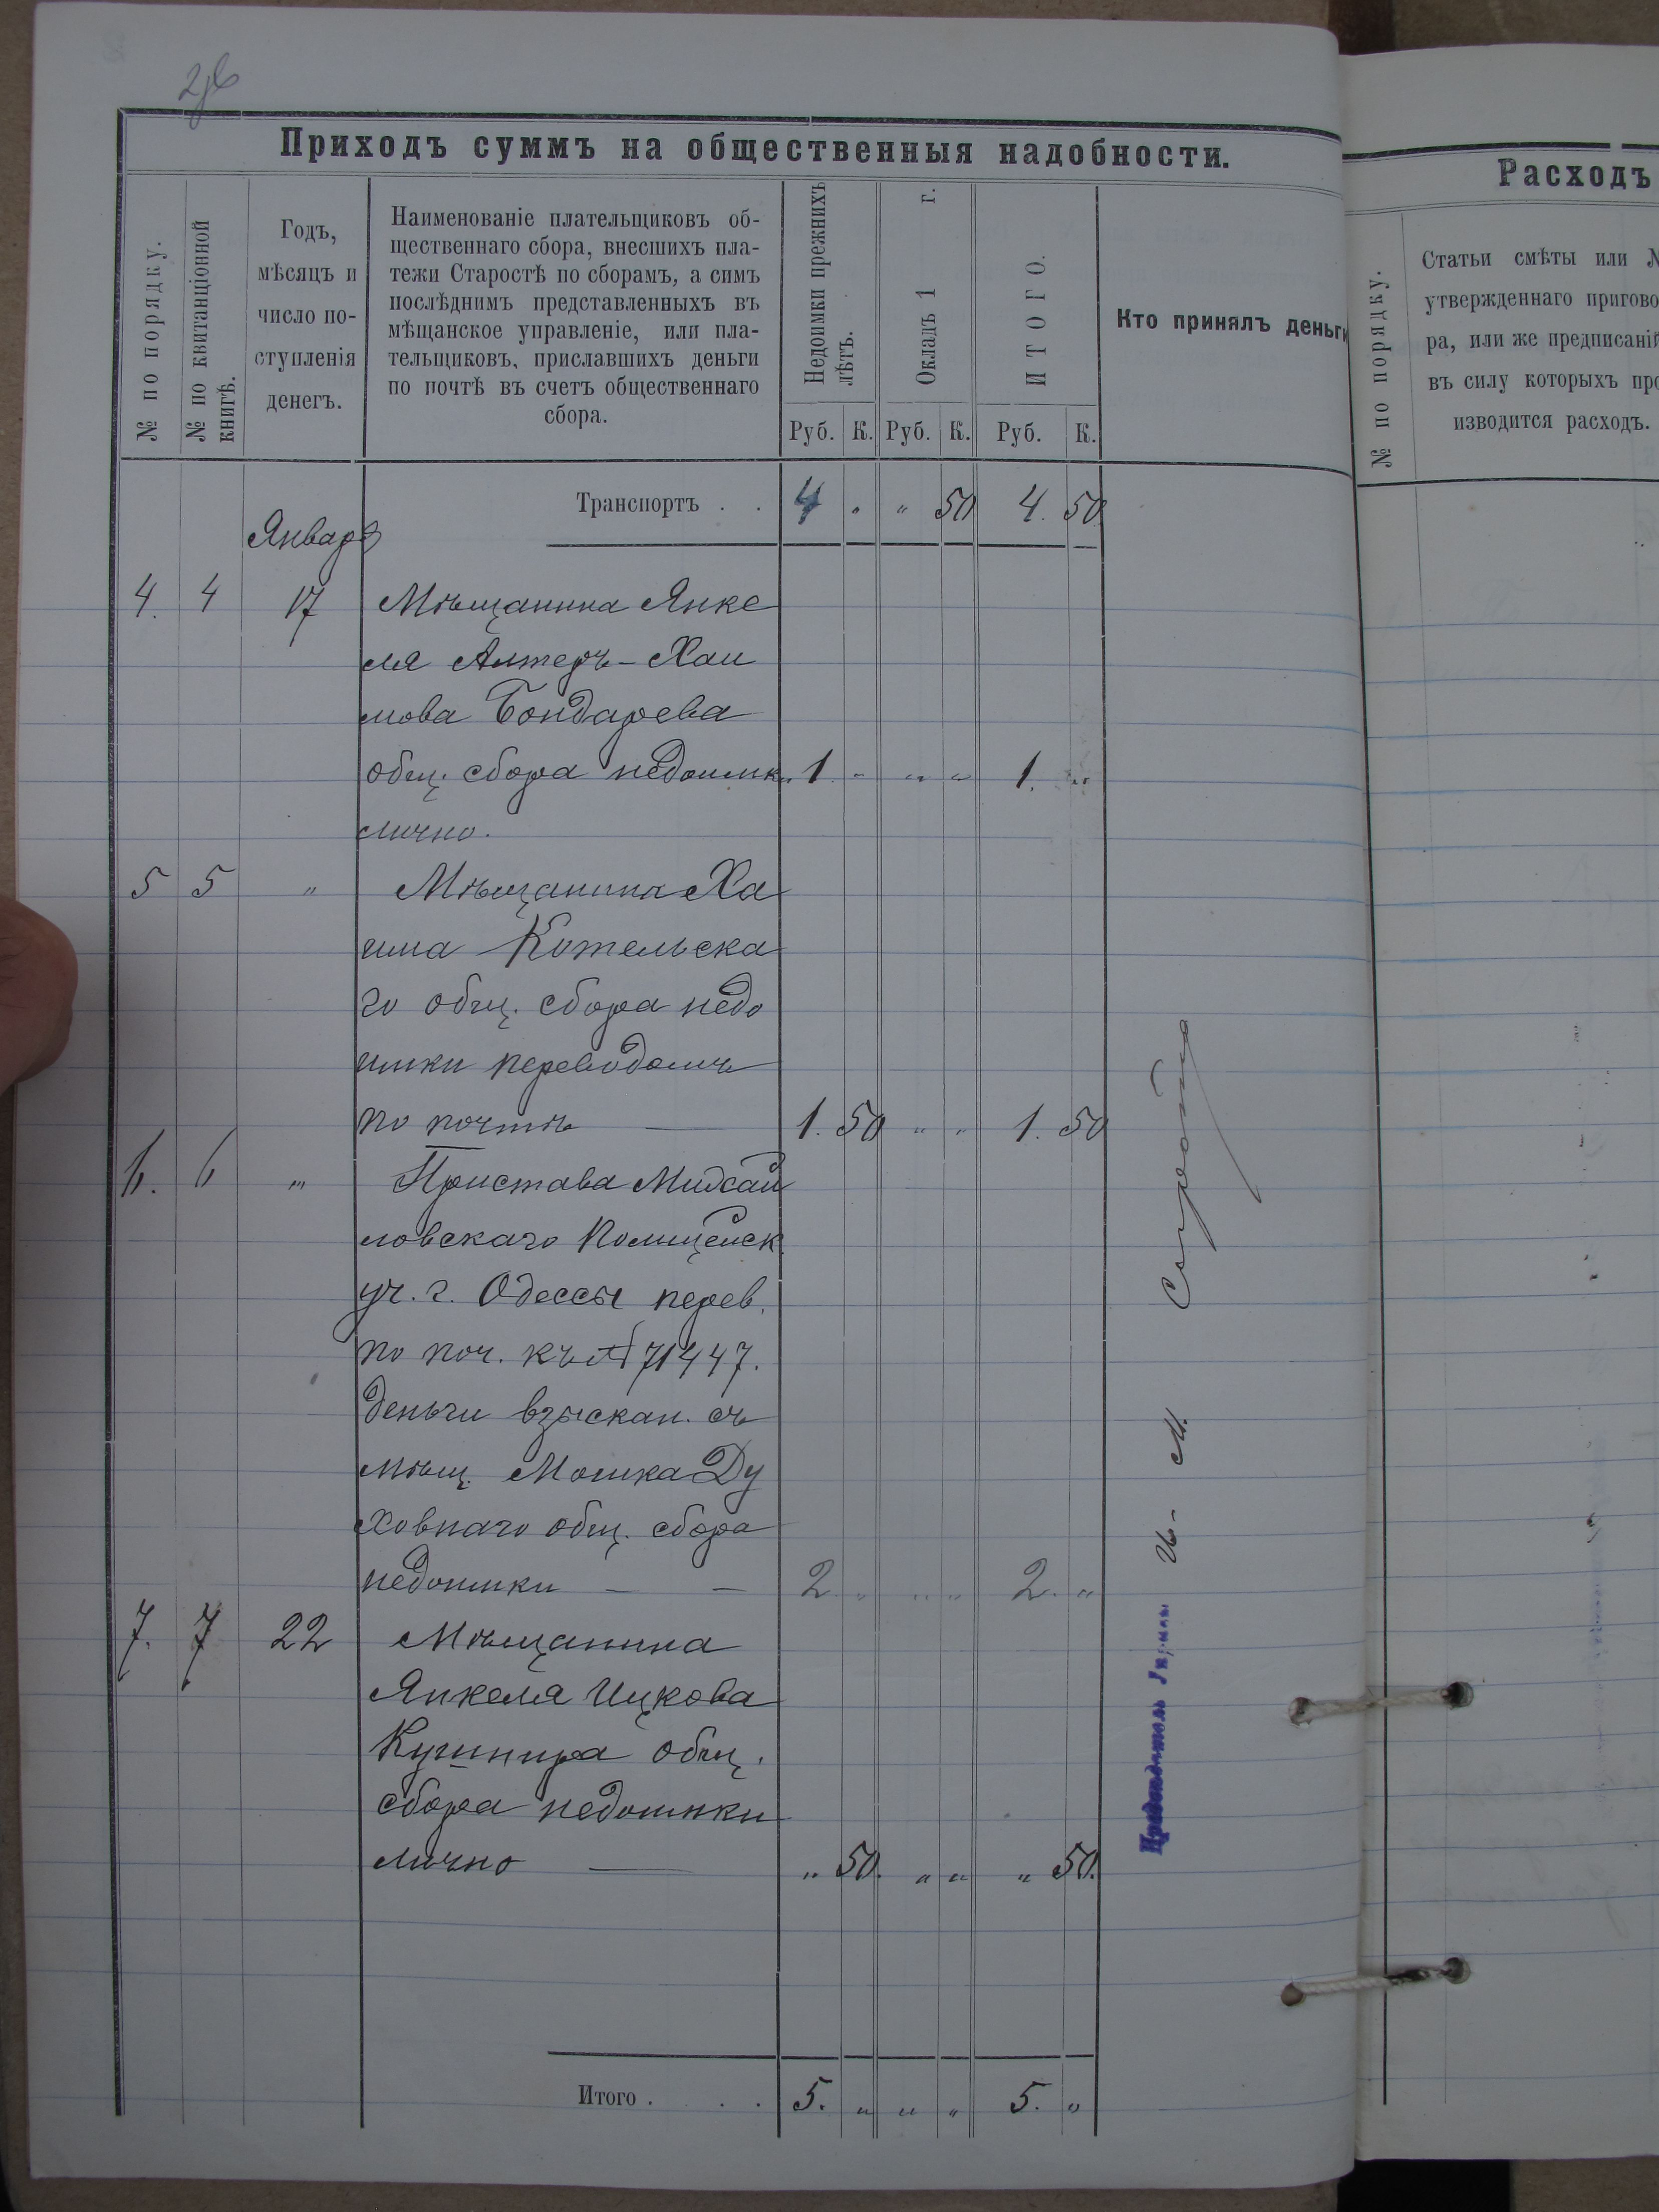 Приходъ суммъ на общественныя надобности.
№ по порядку.
№ по квитанціонной
книгѣ.
Годъ,
мѣсяцъ и
число по-
ступленія
денегъ.
Наименованіе плательщиковъ об-
щественнаго сбора, внесшихъ пла-
тежи Старостѣ по сборамъ, а симъ
послѣднимъ представленныхъ въ
мѣщанское управленіе, или пла-
тельщиковъ, приславшихъ деньги
по почтѣ въ счетъ общественнаго
сбора.
Недоимки прежнихъ
лѣтъ.
Окладъ 1 г.
ИТОГО.
Руб. К. Руб. К. Руб. К.
Кто принялъ деньги
Транспортъ . . 4 " " 50 4. 50
Январь
4. 4 17 Мѣщанина Янке
ля Алтеръ-Хаи
мова Бондарева
общ. сбора недоимк. 1. " " " 1. "
лично.
5 5 " Мѣщанина Ха
има Котельска
го общ. сбора недо
имки переводомъ
по почтѣ — 1. 50 " " 1. 50
6. 6 " Пристава Михай
ловскаго Полицейск.
уч. г. Одессы перев.
по поч. къ № 71447.
деньги взыскан. съ
мѣщ. Мошка Ду
ховнаго общ. сбора
недоимки — — 2. " " " 2. "
7. 7 22 Мѣщанина
Янкеля Ицкова
Кушнира общ.
сбора недоимки
лично — " 50. " " " 50.
Итого . . . 5. " " " 5. "
И. М.
Расходъ
№ по порядку.
Статьи смѣты или №
утвержденнаго пригово
ра, или же предписаній
въ силу которыхъ про
изводится расходъ.